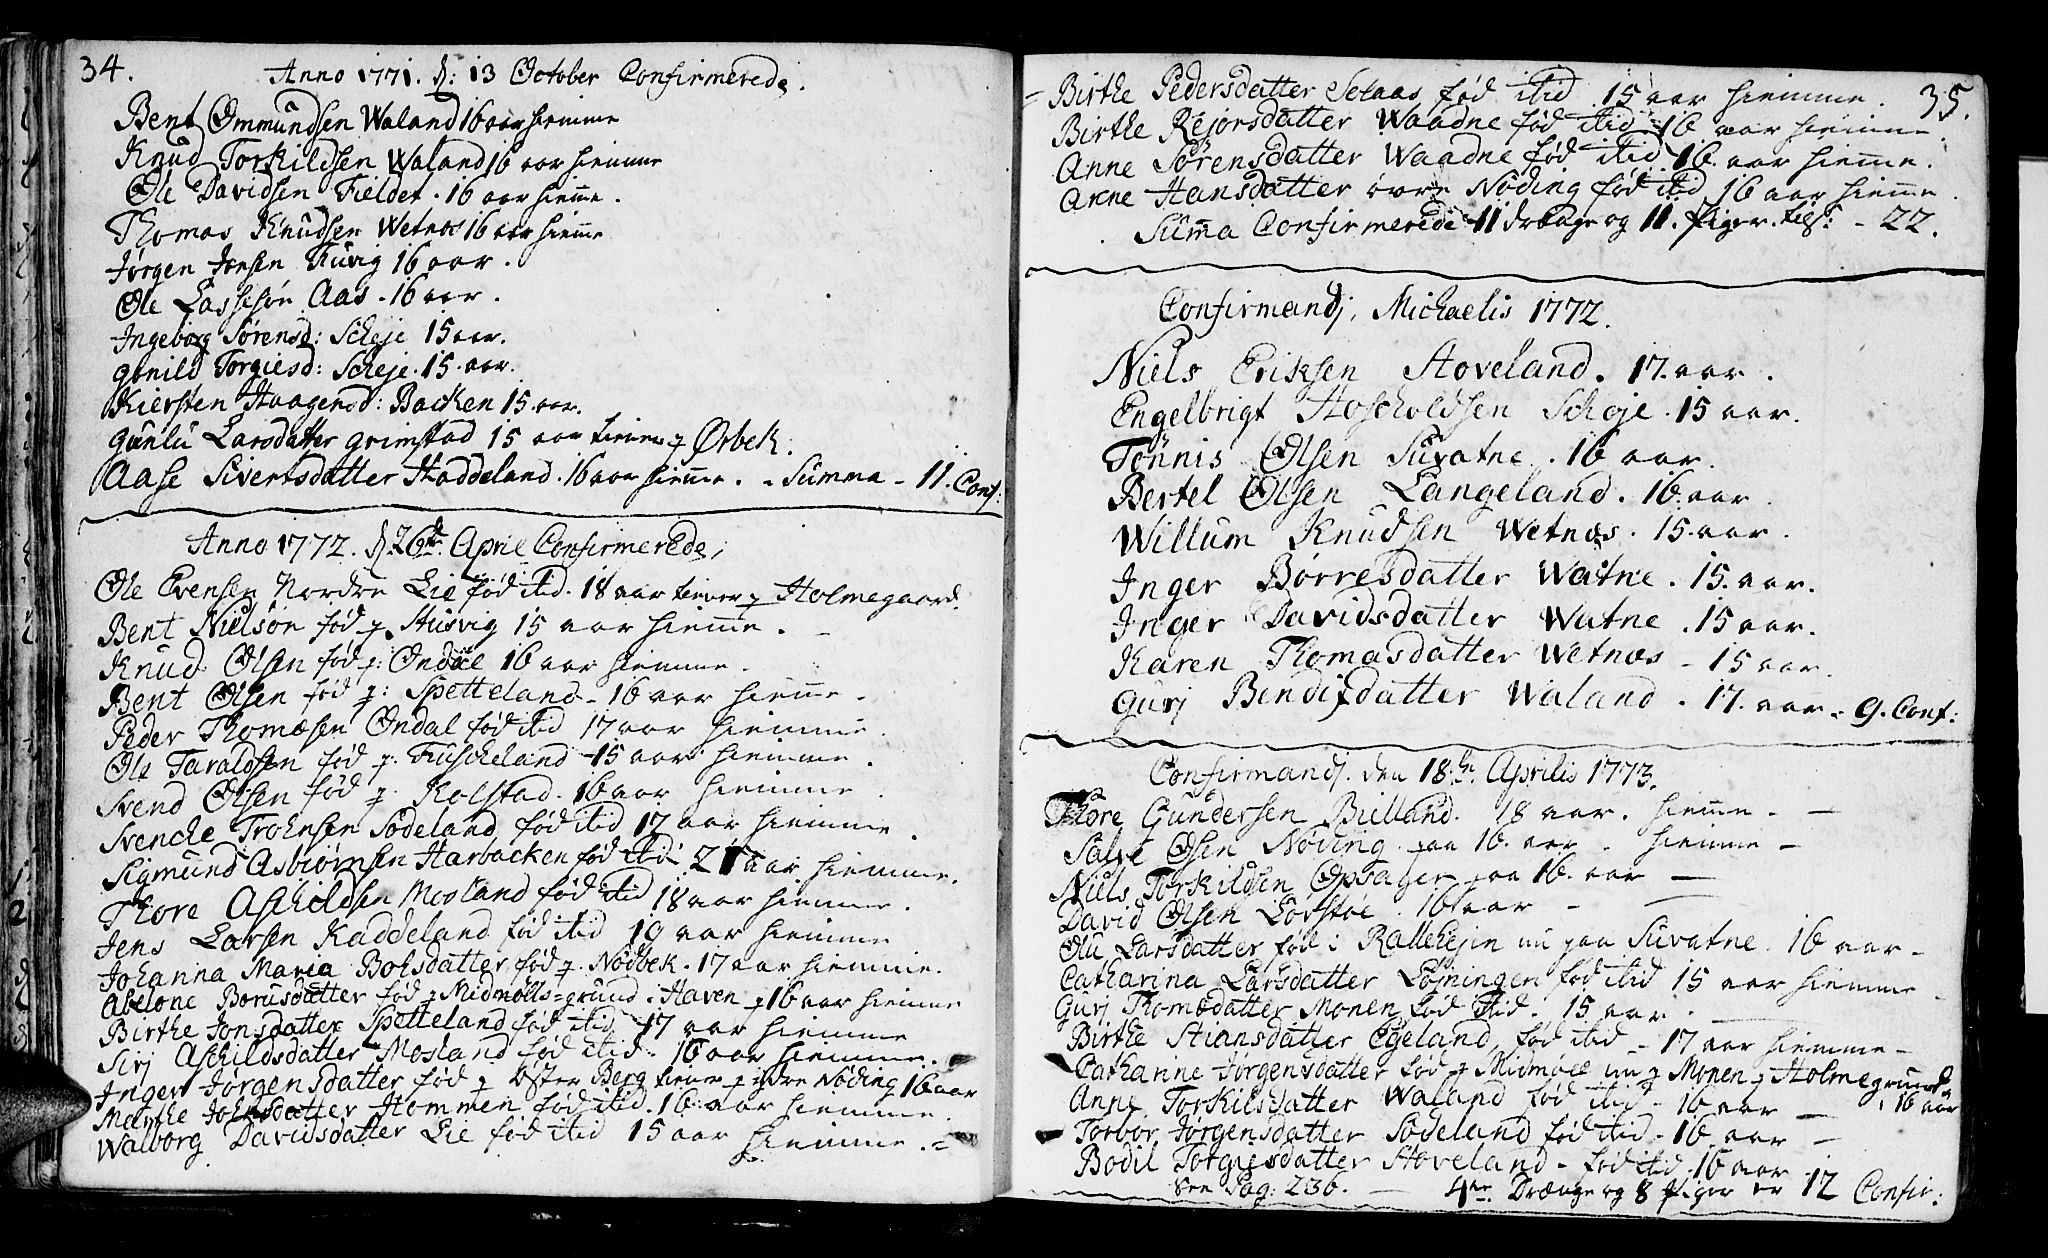 34.
Anno 1771. d: 13 October Confirmerede.
Bent Ommundsen Waland 16 aar hiemme
Knud Torkildsen Waland 16 aar hiemme
Ole Davidsen Fieldet. 16 aar hiem̅e.
Thomas Knudsen Wetnes 16 aar hiem̅e
Jørgen Jensen Fuvig 16 aar.
Ole Lassesøn Aas. 16 aar.
Ingeborg Sørensd: Scheje 15 aar.
gunild Torgiesd: Scheje. 15. aar.
Kiersten Haagensd: Backen 15. aar.
Gunlu Larsdatter grimstad 15 aar tiener p Ørbek.
Aase Sivertsdatter Haddeland. 16 aar hiem̅e. - Summa - 11. Conf:
Anno 1772. d 26de April Confirmerede,
Ole Evensen Nordre Lie fød ibid. 18 aar tiener p Holmegaard.
Bent Nielsøn fød p. Husvig 15 aar hiem̅e.
Knud Olsen fød p: Ondal 16 aar hiemme.
Bent Olsen fød p: Spetteland - 16 aar hiem̅e.
Peder Thomæsen Ondal fød ibid 17 aar hiemme.
Ole Taraldsen fød p: Fuscheland - 15 aar hiemme.
Svend Olsen fød p. Kolstad. 16 aar hiemme.
Svenche Trohnsen Sødeland fød ibid 17 aar hiemme.
Sigmund Asbiørnsen Harbacken fød ibid 21 aar hiemme.
Thore Aschildsen Mosland fød ibid 18 aar hiemme.
Jens Larsen Kaddeland fød ibid 19 aar hiemme
Johanna Maria Bohsdatter fød p. Nødbek. 17 aar hiemme.
Abelone Borusdatter fød p Midnølls=grund i Haven p 16 aar hiemme
Birthe Jonsdatter Spetteland fød ibid 17 aar hiemme
Sirj Aschildsdatter Mosland fød ibid. 16 aar hiemme.
Inger Jørgensdatter fød p Øster Berg tiener p ydre Nøding 16 aar
Marthe Johnsdatter Hommen fød ibid. 16. aar hiemme
Walborg Davidsdatter Lie fød ibid 15 aar hiemme. =
= Birthe Pedersdatter Selaas fød ibid 15 aar hiemme. 35.
Birthe Rejorsdatter Waadne fød ibid 16 aar hiemme.
Anne Sørensdatter Waadne fød ibid 16. aar hiem̅e.
Anne Hansdatter øvre Nøding fød ibid 16 aar hiem̅e.
Sum̅a Confirmerede 11 drænge og 11. Piger. - 22.
Confirmandj. Michaelis 1772.
Niels Eriksen Stoveland. 17. aar.
Engelbrigt Hoscholdsen Scheje. 15 aar.
Tønnis Olsen Suvatne. 16 aar.
Bertel Olsen Langeland. 16. aar.
Willum Knudsen Wetnes. 15. aar.
Inger Børresdatter Watne. 15. aar.
Inger Davidsdatter Watne. 15 aar.
Karen Thomasdatter Wetnes - 15 aar.
Gurj Bendixdatter Waland. 17. aar. - 9. Conf:
Confirmandj. den 18de Aprilis 1773.
Thore Gundersen Bielland. 18 aar. hiem̅e. -
Salve Olsen Nøding paa 16. aar. hiemme -
Niels Torkildsen Opsager paa 16. aar -
David Olsen Løvstøl. 16 aar -
Olu Larsdatter fød i Rallehejen nu paa Suvatne. 16 aar -
Catharina Larsdatter Løjningen fød ibid 15 aar hiemme.
Gurj Thomædatter Monen fød ibid. 15 aar.
Birthe Stiansdatter Egeland, fød ibid - 17 aar hiemme -
Cathanne Jørgensdatter fød p Midmøll nu p Monen p Holmegrund
Anne Torkilsdatter Waland fød ibid - 16 aar - , 16 aar
Torbor Jørgensdatter Sødeland fød ibid - 16 aar -
Bodil Torgiesdatter Stoveland - fød ibid. 16 aar
See Pag: 236. - 4re Drænge og 8 Piger er 12 Confir: